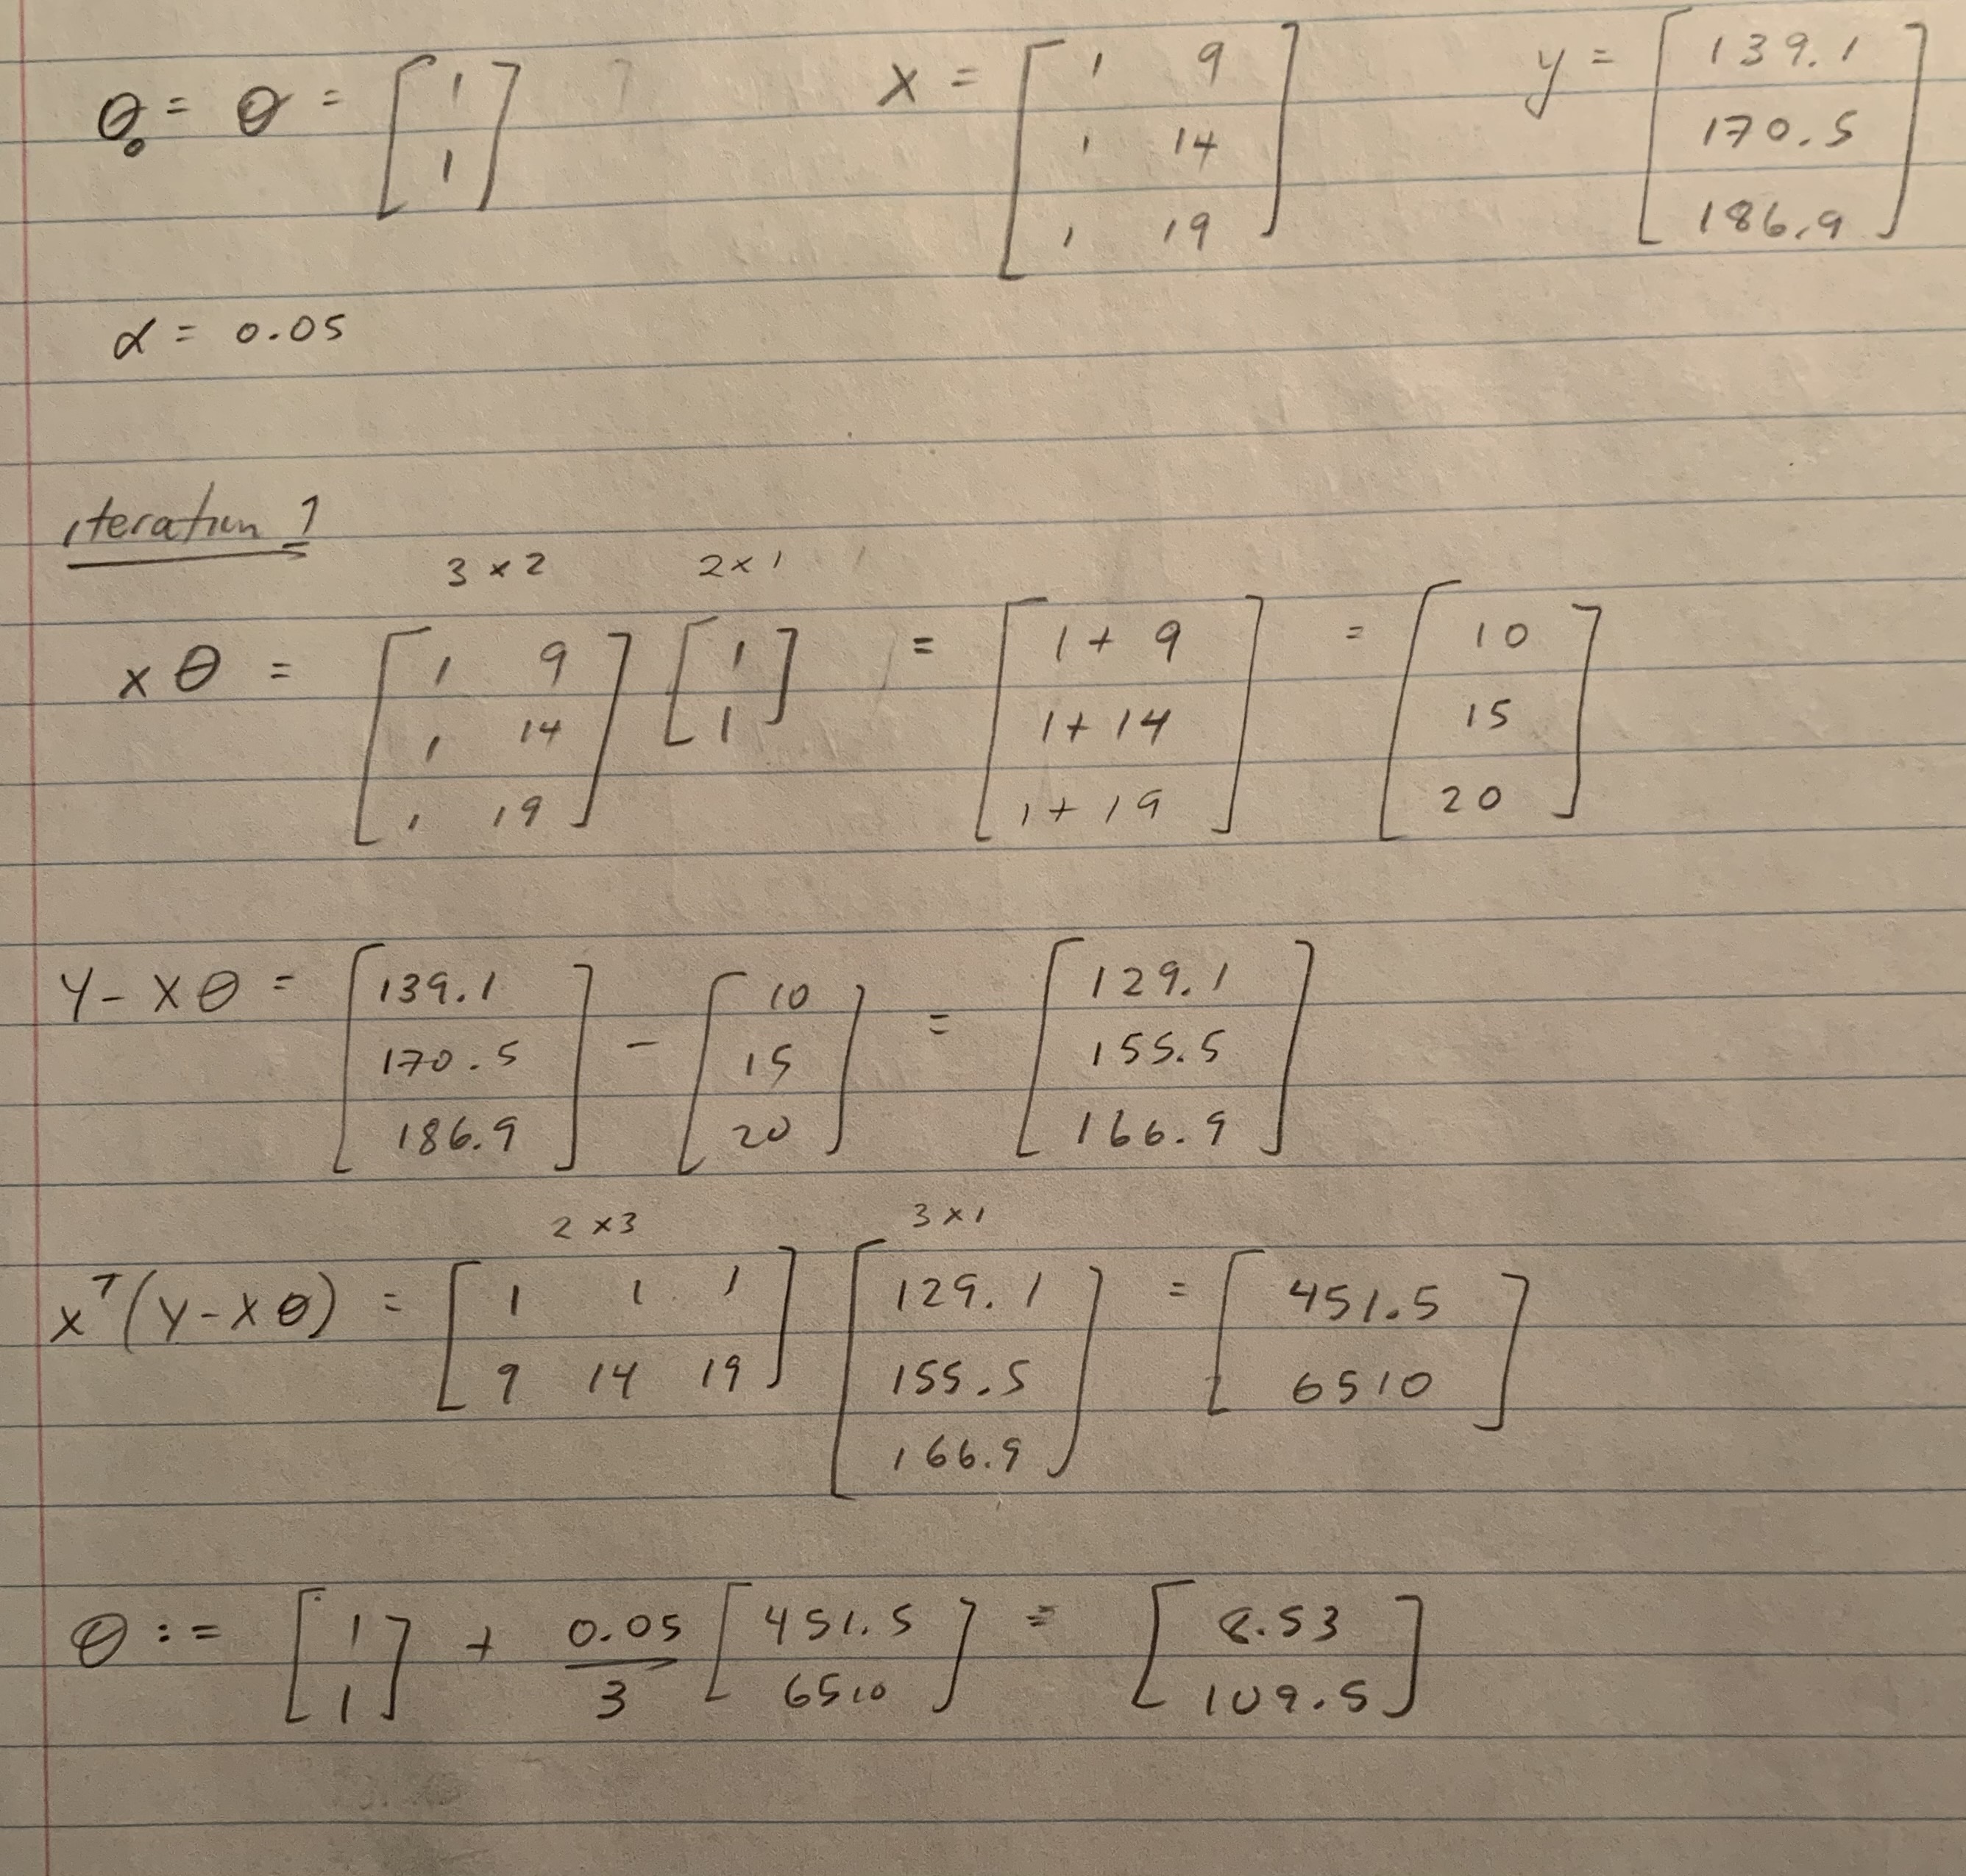 θ₀ = θ = [1; 1]   X = [1 9; 1 14; 1 19]   y = [139.1; 170.5; 186.9]
α = 0.05
iteration 1
3 × 2   2 × 1
xθ = [1 9; 1 14; 1 19] [1; 1] = [1 + 9; 1 + 14; 1 + 19] = [10; 15; 20]
Y - Xθ = [139.1; 170.5; 186.9] - [10; 15; 20] = [129.1; 155.5; 166.9]
2 × 3   3 × 1
Xᵀ(Y - Xθ) = [1 1 1; 9 14 19] [129.1; 155.5; 166.9] = [451.5; 6510]
θ := [1; 1] + 0.05/3 [451.5; 6510] = [8.53; 109.5]